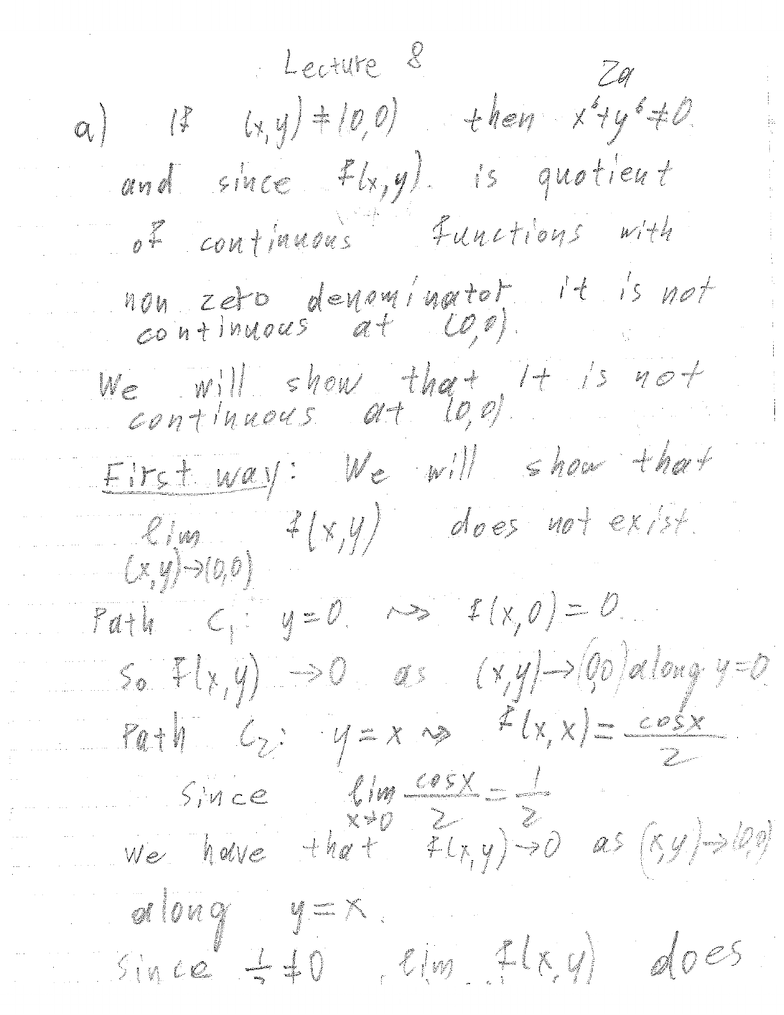 Lecture 8
2a
a) If (x,y) ≠ (0,0) then x⁶+y⁶≠0
and since f(x,y). is quotient
of continuous functions with
non zero denominator it is not
continuous at (0,0).
We will show that it is not
continuous at (0,0)
First way: We will show that
lim f(x,y) does not exist.
(x,y)→(0,0)
Path C₁: y=0. ⇝ f(x,0)=0.
So f(x,y) →0 as (x,y)→(0,0) along y=0
Path C₂: y=x ⇝ f(x,x)= cosx/2
Since lim cosx/2 = 1/2
x→0
we have that f(x,y)→0 as (x,y)→(0,0)
along y=x.
Since 1/2 ≠0 , lim f(x,y) does